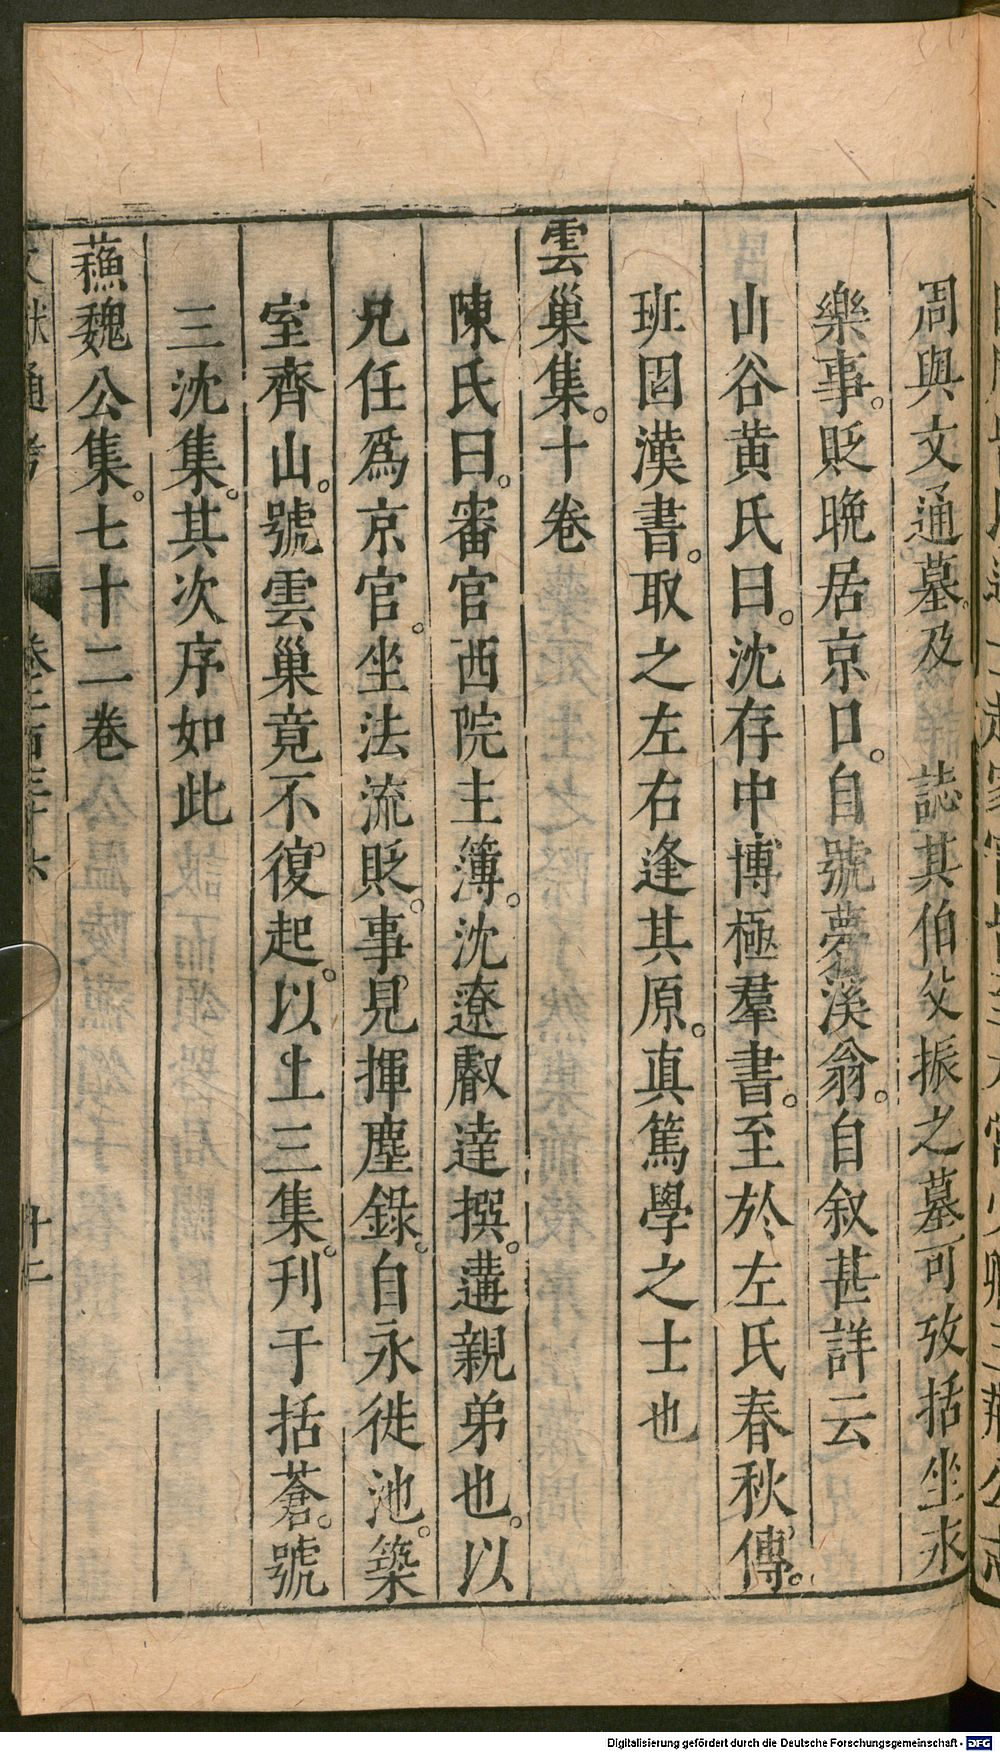 周與文通墓及誌其伯父振之墓可攷括坐永
樂事。貶晚居京口。自號夢溪翁。自叙甚詳云
山谷黄氏曰。沈存中博極羣書。至於左氏春秋傳。
班固漢書。取之左右逢其原。真篤學之士也
雲巢集。十卷
陳氏曰。審官西院主簿。沈遼叡達撰。遘親弟也。以
兄任爲京官。坐法流貶。事見揮塵錄。自永徙池。築
室齊山。號雲巢竟不復起。以上三集。刊于括蒼。號
三沈集。其次序如此
蘓魏公集。七十二卷
文獻通考 卷二百三十六
Digitalisierung gefördert durch die Deutsche Forschungsgemeinschaft - DFG